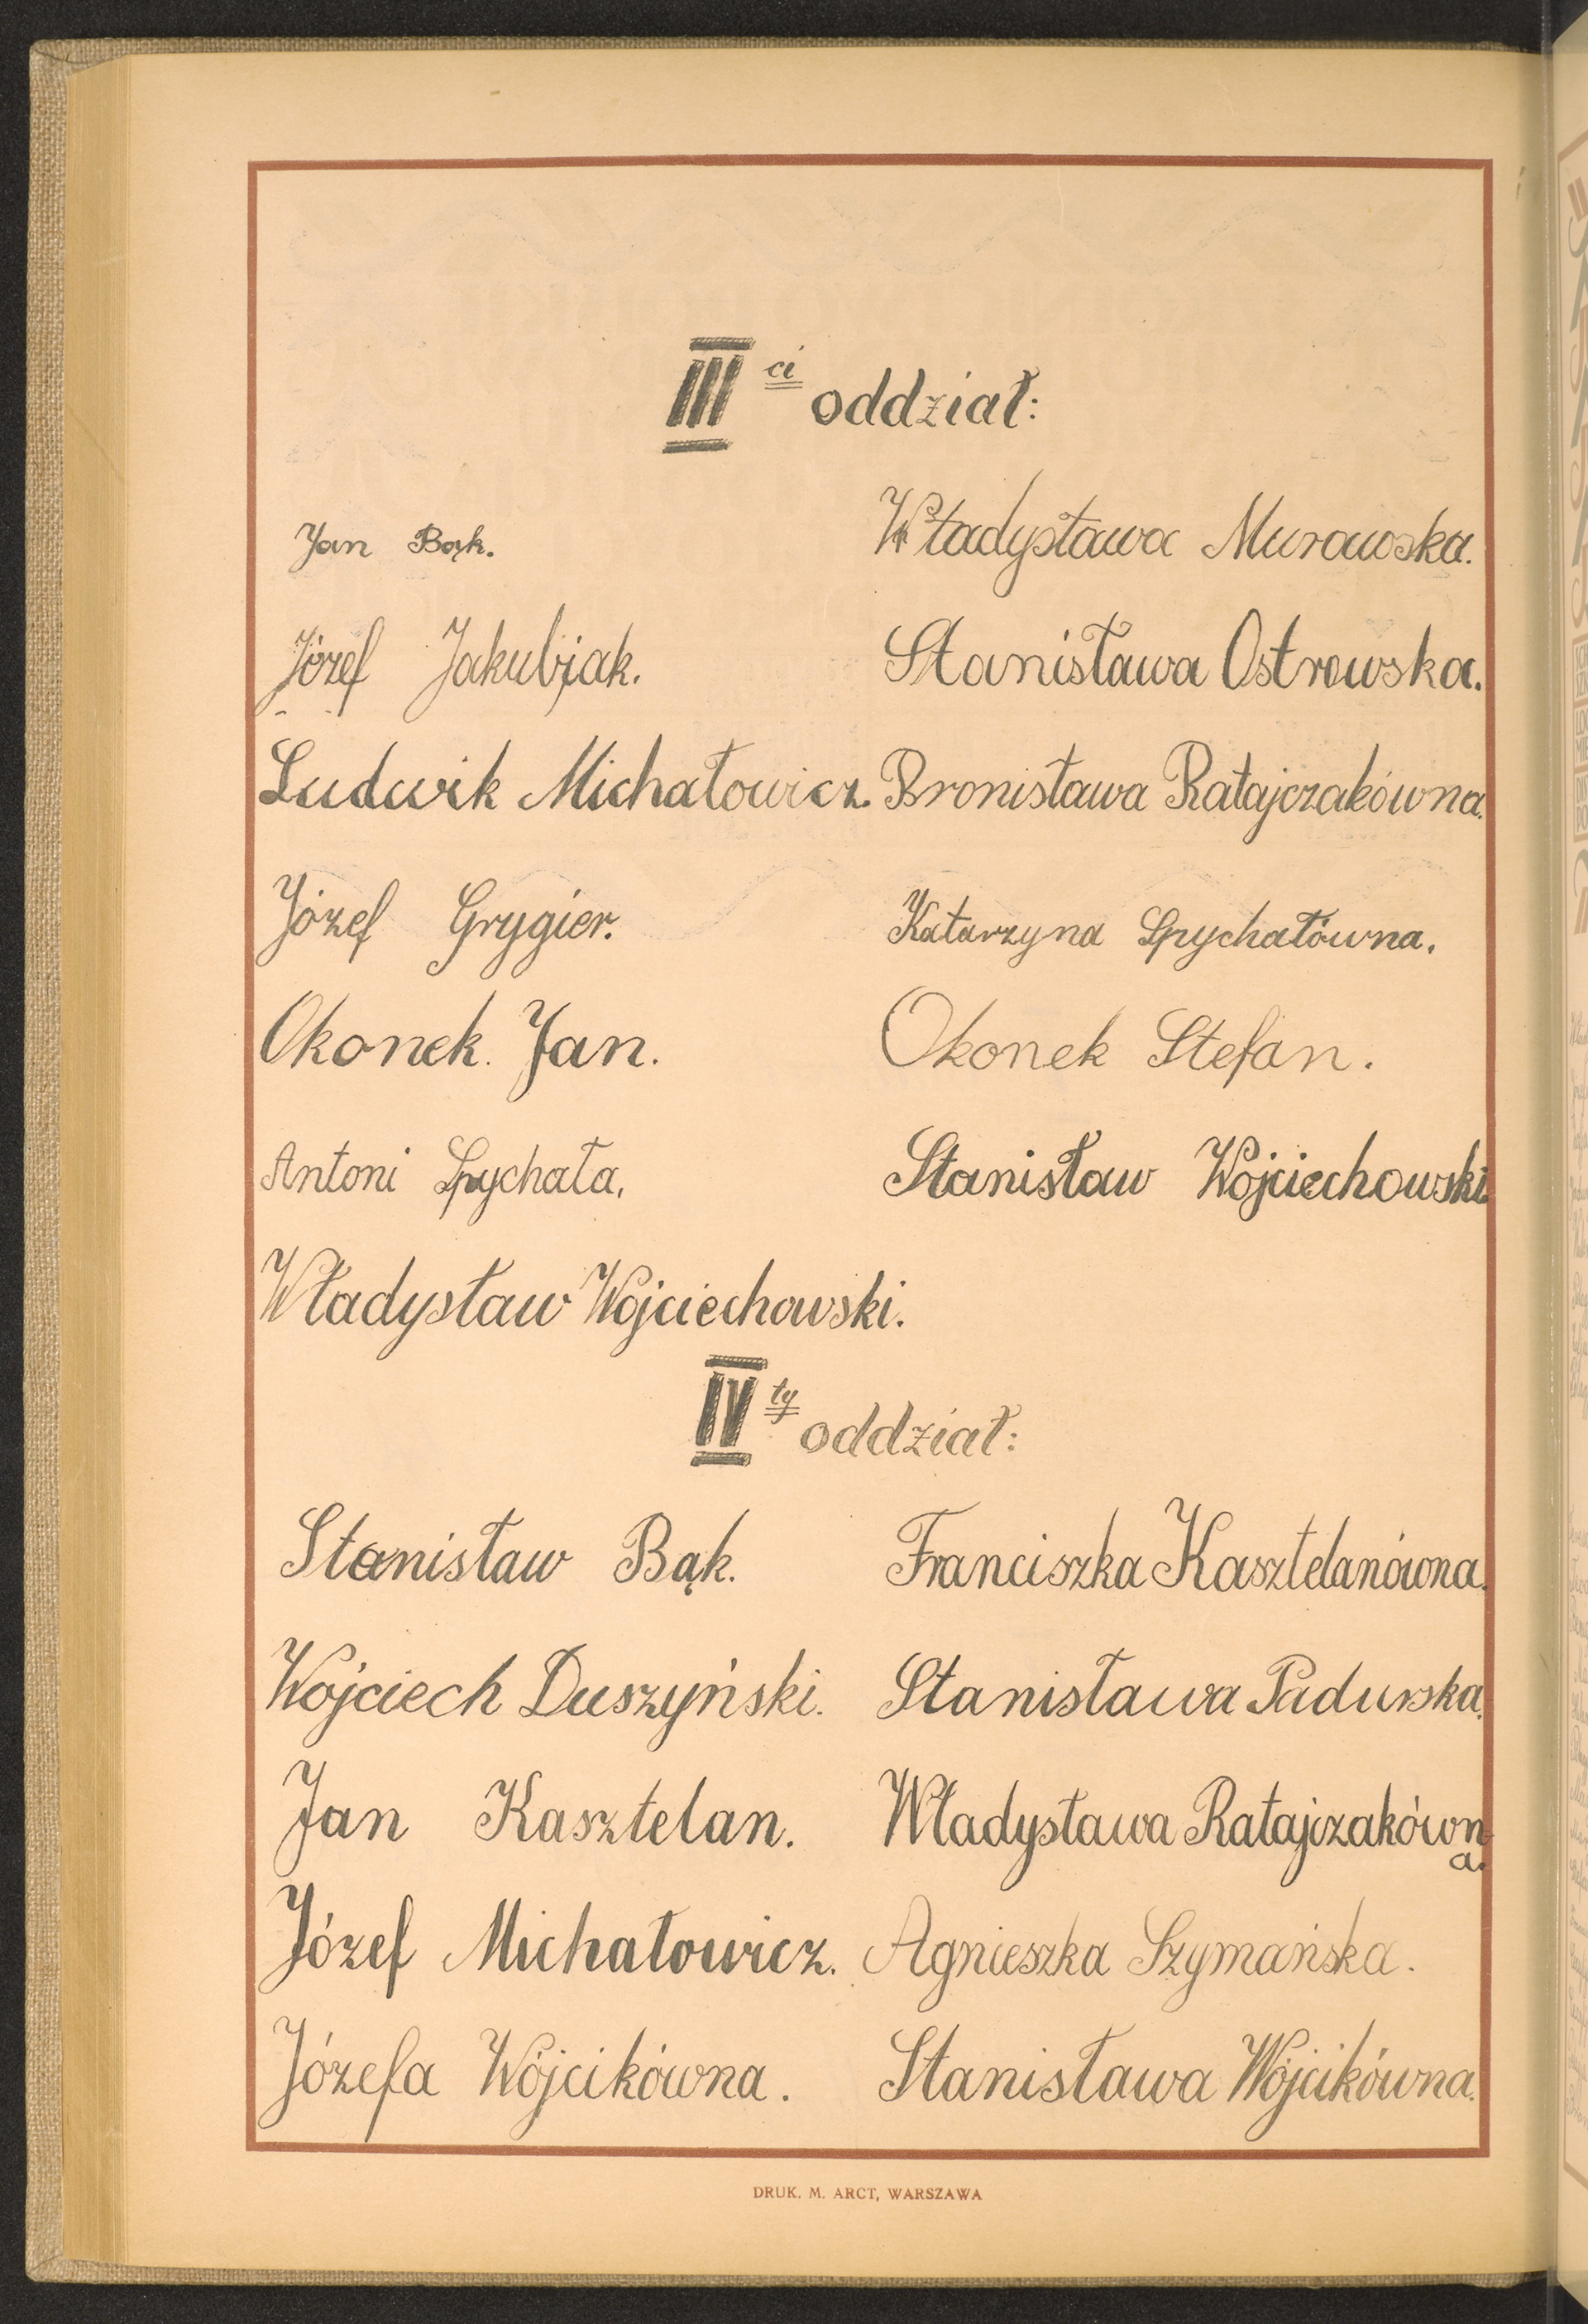 III ci oddział:
Jan Bąk. Władysława Murawska.
Józef Jakubjak. Stanisława Ostrowska.
Ludwik Michałowicz. Bronisława Ratajczakówna.
Józef Grygier. Katarzyna Spychałówna.
Okonek. Jan. Okonek Stefan.
Antoni Spychała, Stanisław Wojciechowski.
Władysław Wojciechowski.
IV ty oddział:
Stanisław Bąk. Franciszka Kasztelanówna.
Wojciech Duszyński. Stanisława Padurska.
Jan Kasztelan. Władysława Ratajczakówna.
Józef Michałowicz. Agnieszka Szymańska.
Józefa Wójcikówna. Stanisława Wójcikówna.
DRUK. M. ARCT, WARSZAWA